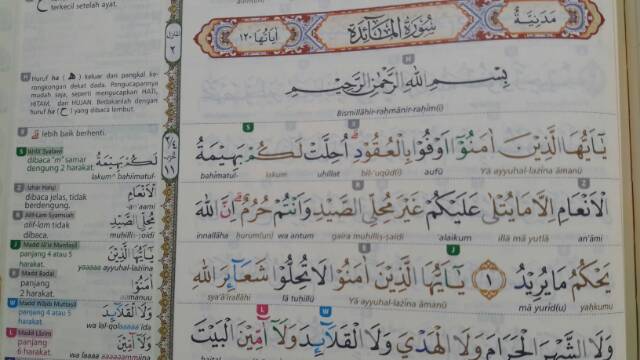 terkecil setelah ayat.
Huruf ha (ه) keluar dari pangkal ke-
rongkongan dekat dada. Pengucapannya
mudah saja, seperti mengucapkan HAD,
HITAM, dan HUJAN. Bedakanlah dengan
huruf ha (ح) yang dibaca lembut.
lebih baik berhenti.
Ikhfa Syafawi
dibaca "m" samar
dengung 2 harakat.
لَكُمْ بَهِيْمَةُ
lakumᵐ bahimatul
Izhar Halqi
dibaca jelas, tidak
berdengung.
الْاَنْعَامِ
al-an'aami
Alif-Lam Syamsiah
alif-lam tidak
dibaca.
مُحِلِّى الصَّيْدِ
muhilliṣ-ṣaidi
Madd Ja'iz Munfasil
panjang 4 atau 5
harakat.
يٰٓاَيُّهَا الَّذِيْنَ
yaaaaa ayyuhal-lazina
Madd Badal
panjang
2 harakat.
اٰمَنُوْا
aamanuu
Madd Wajib Muttasil
panjang 4 atau 5
harakat.
وَلَا الْقَلَاۤىِٕدَ
Madd Lazim
panjang 6
harakat.
وَلَآ اٰۤمِّيْنَ
مَدَنِيَّةٌ
سُوْرَةُ الْمَائِدَةِ
اٰيَاتُهَا ١٢٠
بِسْمِ اللّٰهِ الرَّحْمٰنِ الرَّحِيْمِ
Bismillāhir-raḥmānir-raḥīm(i)
يٰٓاَيُّهَا الَّذِيْنَ اٰمَنُوْٓا اَوْفُوْا بِالْعُقُوْدِۗ اُحِلَّتْ لَكُمْ بَهِيْمَةُ
Yā ayyuhal-lażīna āmanū aufū bil-'uqūd(i) uḥillat lakum bahīmatul-
الْاَنْعَامِ اِلَّا مَا يُتْلٰى عَلَيْكُمْ غَيْرَ مُحِلِّى الصَّيْدِ وَاَنْتُمْ حُرُمٌۗ اِنَّ اللّٰهَ
an'āmi illā mā yutlā 'alaikum gaira muḥilliṣ-ṣaidi wa antum ḥurum(un) innallāha
يَحْكُمُ مَا يُرِيْدُ ١ يٰٓاَيُّهَا الَّذِيْنَ اٰمَنُوْا لَا تُحِلُّوْا شَعَاۤىِٕرَ اللّٰهِ
yaḥkumu mā yurīd(u) Yā ayyuhal-lażīna āmanū lā tuḥillū sya'ā'irallāhi
وَلَا الشَّهْرَ الْحَرَامَ وَلَا الْهَدْيَ وَلَا الْقَلَاۤىِٕدَ وَلَآ اٰۤمِّيْنَ الْبَيْتَ